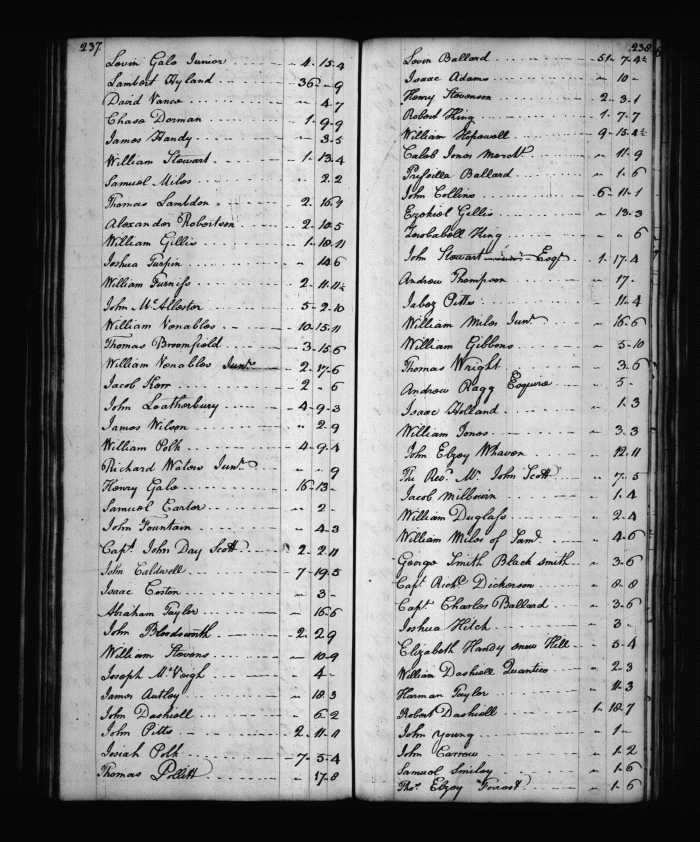 237.
Levin Gale Junior - 4 - 15 - 4
Lambert Hyland - 36 - " - 9
David Vance " 4 - 7
Chase Dorman 1 - 9 - 9
James Handy " 3 - 5
William Stewart 1 - 13 - 4
Samuel Miles " 2 - 2
Thomas Lambden 2 - 16 -
Alexander Robertson 2 - 10 - 5
William Gillis 1 - 18 - 11
Joshua Turpin " 14 - 6
William Furniss 2 - 11 - 11½
John McAllester 5 - 2 - 10
William Venables 10 - 15 - 11
Thomas Broomfield 3 - 15 - 6
William Venables Junr 2 - 17 - 6
Jacob Kerr 2 " 6
John Leatherbury 4 - 9 - 3
James Wilson " 2 - 9
William Polk 4 - 9 - 4
Richard Waters Junr " - " 9
Henry Gale 16 - 13 -
Samuel Carter " 2 -
John Fountain " 4 - 3
Capt. John Day Scott 2 - 2 - 11
John Caldwell 7 - 19 - 5
Isaac Coston " 3 -
Abraham Taylor " 16 - 6
John Bloodsworth 2 - 2 - 9
William Stevens " 10 - 9
Joseph McVeigh " 4 -
James " 18 - 3
John Dashiell " 6 - 2
John Pitts 2 - 11 - 11
Josiah Polk 7 - 5 - 4
Thomas Pollitt " 17 - 8
238.
Levin Ballard 51 - 7 - 4½
Isaac Adams " 10 -
Henry Stevenson 2 - 3 - 1
Robert King 1 - 7 - 7
William Hopewell 9 - 15 - 4½
Caleb Jones Mercht. " 11 - 9
Prissilla Ballard " 1 - 6
John Collins 6 - 11 - 1
Ezekiel Gillis " 13 - 3
Zorobabell King " " 6
John Stewart Esqr. 1 - 17 - 4
Andrew Thompson " 17 -
Jabez Pitts " 11 - 4
William Miles Junr " 16 - 6
William Gibbons " 5 - 10
Thomas Wright " 3 - 6
Andrew Ragg Esquire " 5 -
Isaac Holland " 1 - 3
William Jones " 3 - 3
John Elzey Whaven " 12 - 11
The Revd. Mr John Scott " 7 - 5
Jacob Milbourn " 1 - 4
William Duglass " 2 - 4
William Miles of Saml. " 4 - 6
George Smith Black smith " 3 - 6
Capt Richd Dickerson " 8 - 8
Capt Charles Ballard " 3 - 6
Joshua Hitch " 3 -
Elizabeth Handy snow Hill " 5 - 4
William Dashiell Quantico " 2 - 3
Harman Taylor " 11 - 3
Robert Dashiell 1 - 18 - 7
John Young " 1 -
John Carrow " 1 - 2
Samuel Smiley " 1 - 6
Thos. Elzey " 1 - 6